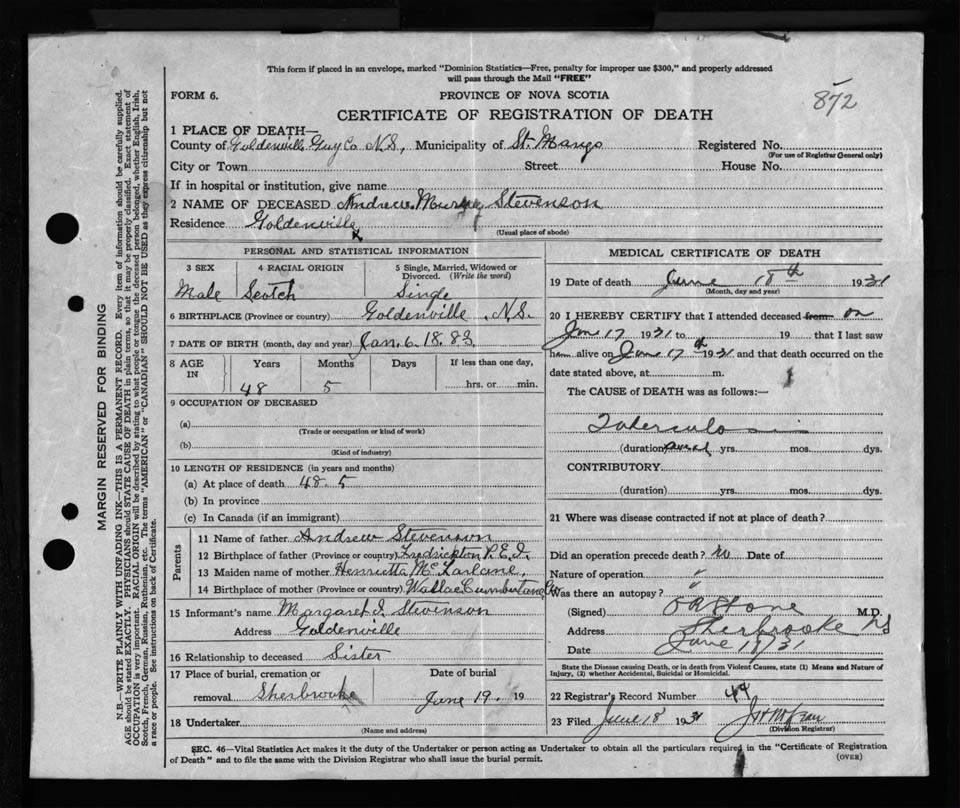 This form if placed in an envelope, marked "Dominion Statistics—Free, penalty for improper use $300," and properly addressed
will pass through the Mail "FREE"
872
FORM 6.
PROVINCE OF NOVA SCOTIA
CERTIFICATE OF REGISTRATION OF DEATH
1 PLACE OF DEATH—
County of Goldenville Guy Co N.S., Municipality of St. Registered No.
(For use of Registrar General only)
City or Town Street House No.
If in hospital or institution, give name
2 NAME OF DECEASED Andrew Stevenson
Residence Goldenville
(Usual place of abode)
PERSONAL AND STATISTICAL INFORMATION
3 SEX 4 RACIAL ORIGIN 5 Single, Married, Widowed or
Divorced. (Write the word)
Male Scotch Single
6 BIRTHPLACE (Province or country) Goldenville, N.S.
7 DATE OF BIRTH (month, day and year) Jan. 6. 18.83
8 AGE
IN
Years Months Days If less than one day,
48 5 hrs. or min.
9 OCCUPATION OF DECEASED
(a)
(Trade or occupation or kind of work)
(b)
(Kind of industry)
10 LENGTH OF RESIDENCE (in years and months)
(a) At place of death 48. 5
(b) In province
(c) In Canada (if an immigrant)
Parents
11 Name of father Andrew Stevenson
12 Birthplace of father (Province or country) Fredrickton P.E.I.
13 Maiden name of mother Henrietta McLarlane,
14 Birthplace of mother (Province or country) Wallace
15 Informant's name Margaret J. Stevinson
Address Goldenville
16 Relationship to deceased Sister
17 Place of burial, cremation or
removal Sherbrooke
Date of burial
June 19. 19
18 Undertaker
(Name and address)
MEDICAL CERTIFICATE OF DEATH
19 Date of death June 18th 1931
(Month, day and year)
20 I HEREBY CERTIFY that I attended deceased from on
June 17 1931 to 19 that I last saw
h alive on June 17th 1931 and that death occurred on the
date stated above, at m.
The CAUSE OF DEATH was as follows:—
Tuberculosis
(duration) yrs. mos. dys.
CONTRIBUTORY
(duration) yrs. mos. dys.
21 Where was disease contracted if not at place of death?
Did an operation precede death? no Date of
Nature of operation "
Was there an autopsy? "
(Signed) M.D.
Address Sherbrooke NS
Date June 18/31
State the Disease causing Death, or in death from Violent Causes, state (1) Means and Nature of
Injury, (2) whether Accidental, Suicidal or Homicidal.
22 Registrar's Record Number
23 Filed June 18 1931
(Division Registrar)
SEC. 46—Vital Statistics Act makes it the duty of the Undertaker or person acting as Undertaker to obtain all the particulars required in the "Certificate of Registration
of Death" and to file the same with the Division Registrar who shall issue the burial permit.
(OVER)
MARGIN RESERVED FOR BINDING
N.B.—WRITE PLAINLY WITH UNFADING INK—THIS IS A PERMANENT RECORD. Every item of information should be carefully supplied.
AGE should be stated EXACTLY. PHYSICIANS should STATE CAUSE OF DEATH in plain terms, so that it may be properly classified. Exact statement of
OCCUPATION is very important. RACIAL ORIGIN will be described by stating to what people or tongue the deceased person belonged, whether English, Irish,
Scotch, French, German, Russian, Ruthenian, etc. The terms "AMERICAN" or "CANADIAN" SHOULD NOT BE USED as they express citizenship but not
a race or people. See instructions on back of Certificate.